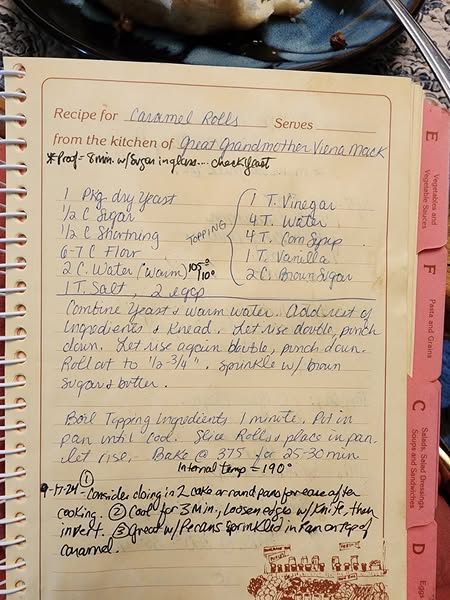 Recipe for Caramel Rolls Serves
from the kitchen of Great Grandmother Viena Mack
*Proof = 8 min. w/Sugar in glass... check yeast
1 Pkg dry Yeast
1/2 C Sugar
1/2 C Shortning
6-7 C Flour
2 C. Water (Warm) 105°-110°
1 T. Salt 2 eggs
TOPPING
1 T. Vinegar
4 T. Water
4 T. Corn Syrup
1 T. Vanilla
2 C. Brown Sugar
Combine Yeast & warm water. Add rest of
ingredients & Knead. Let rise double, punch
down. Let rise again double, punch down.
Roll out to 1/2-3/4". Sprinkle w/ brown
Sugar & butter.
Boil Topping Ingredients 1 minute. Put in
pan until cool. Slice Rolls & place in pan.
Let rise. - Bake @ 375 for 25-30 min.
Internal temp = 190°
9-17-24 - ① Consider doing in 2 cake or round pans for ease after
cooking. ② Cool for 3 Min., Loosen edges w/Knife, then
invert. ③ Great w/Pecans sprinkled in Pan on top of
caramel.
E
Vegetables and
Vegetable Sauces
F
Pasta and Grains
C
Salads, Salad Dressings,
Soups and Sandwiches
D
Eggs